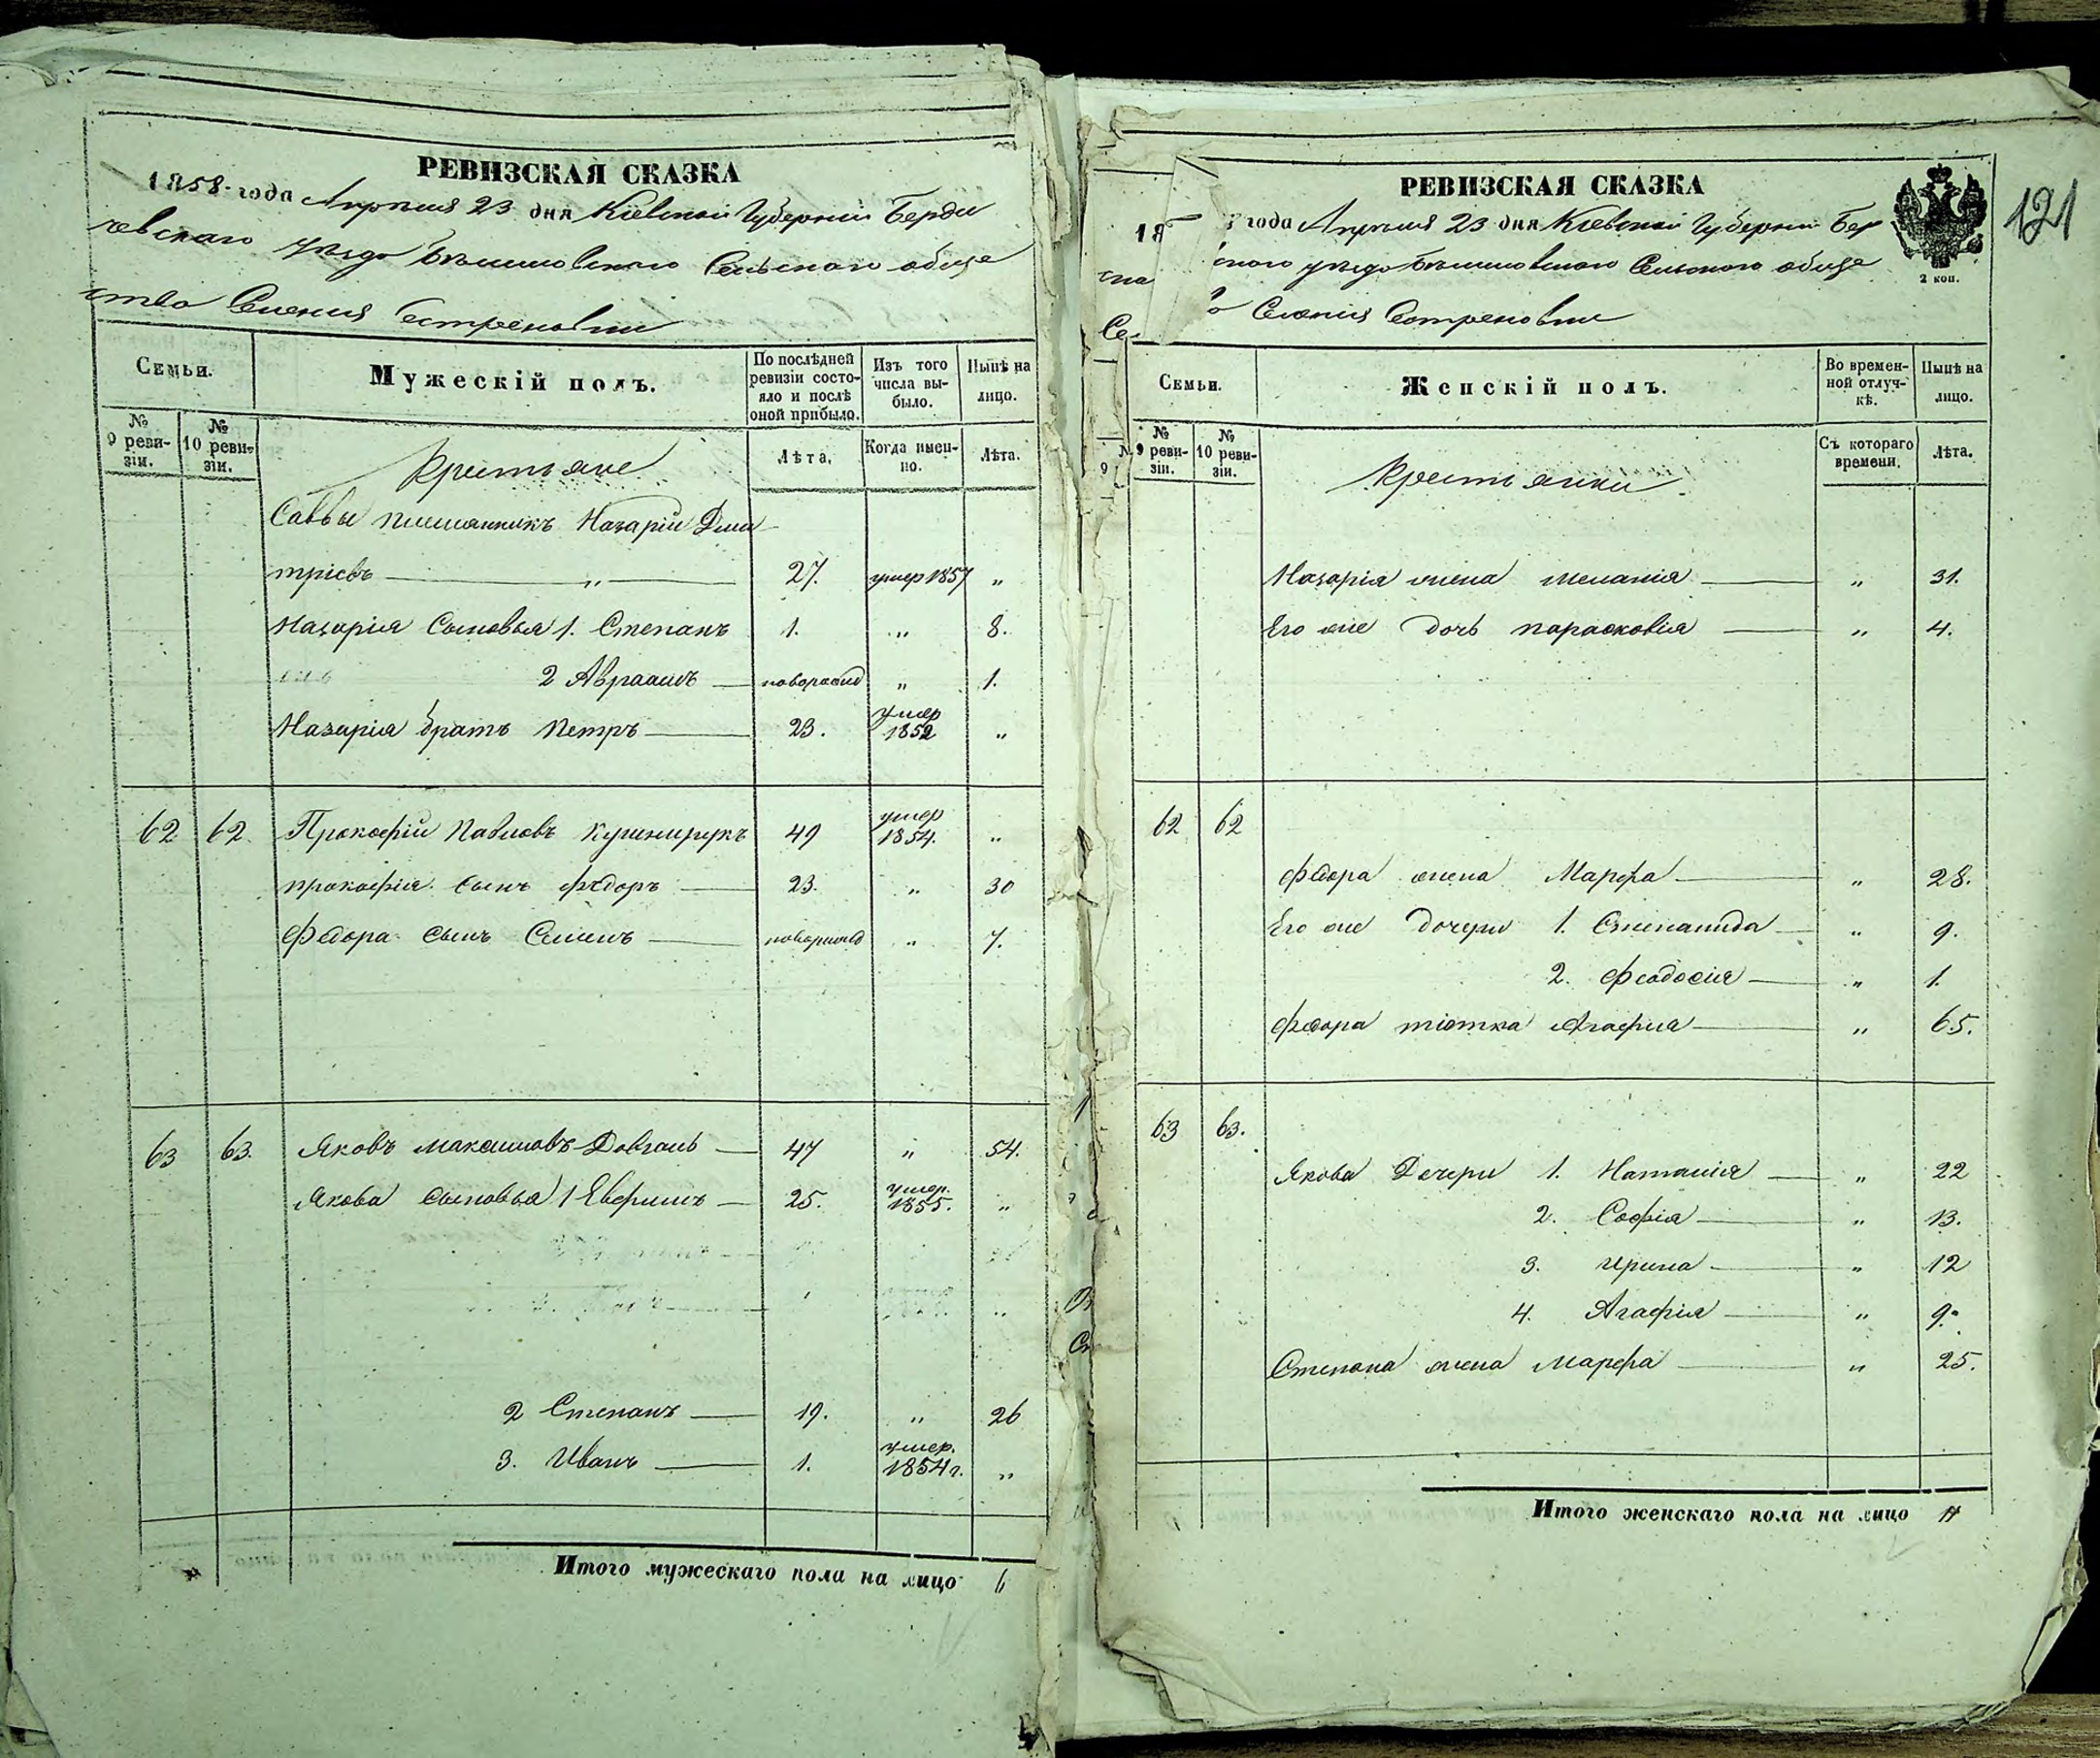 РЕВИЗСКАЯ СКАЗКА
1858 года Апреля 23 дня Кіевской Губерніи Берди
чевскаго уѣзда Сельскаго обще
ства Селенія
Семьи.
Мужескій полъ.
По послѣдней ревизіи состояло и послѣ оной прибыло.
Изъ того числа выбыло.
Нынѣ на лицо.
№ 9 ревизіи.
№ 10 ревизіи.
Крестьяне
Лѣта.
Когда именно.
Лѣта.
Саввы племянникъ Назарій Дми
тріевъ — „ — 27. умер 1857 „
Назарія Сыновья 1. Степанъ 1. „ 8.
2 Авраамъ — новорожд „ 1.
Назарія братъ Петръ — 23. умер 1852 „
62 62. Прокофій Павловъ 49 умер 1854. „
прокофія сынъ Ѳедоръ — 23. „ 30
Федора сынъ Семенъ — новорожд „ 7.
63 63. Яковъ Максимовъ Довгань — 47 „ 54.
Якова Сыновья 1 — 25. умер. 1855. „
2 Степанъ — 19. „ 26
3. Иванъ — 1. умер. 1854 г. „
Итого мужескаго пола на лицо 6
РЕВИЗСКАЯ СКАЗКА
121
18 года Апреля 23 дня Кіевской Губерніи Бер
скаго уѣзда Сельскаго обще
2 коп.
Селенія
Семьи.
Женскій полъ.
Во временной отлучкѣ.
Нынѣ на лицо.
№ 9 ревизіи.
№ 10 ревизіи.
Крестьянки.
Съ котораго времени.
Лѣта.
Назарія жена Меланія — „ 31.
Его же дочь Парасковія — „ 4.
62 62
Федора жена Марфа — „ 28.
Его же дочери 1. Степанида — „ 9.
2. Феодосія — „ 1.
Федора тіотка Агафия — „ 65.
63 63.
Якова Дочери 1. Наталія — „ 22
2. Софія — „ 13.
3. Ирина — „ 12
4. Агафія — „ 9.
Степана жена Марфа — „ 25.
Итого женскаго пола на лицо